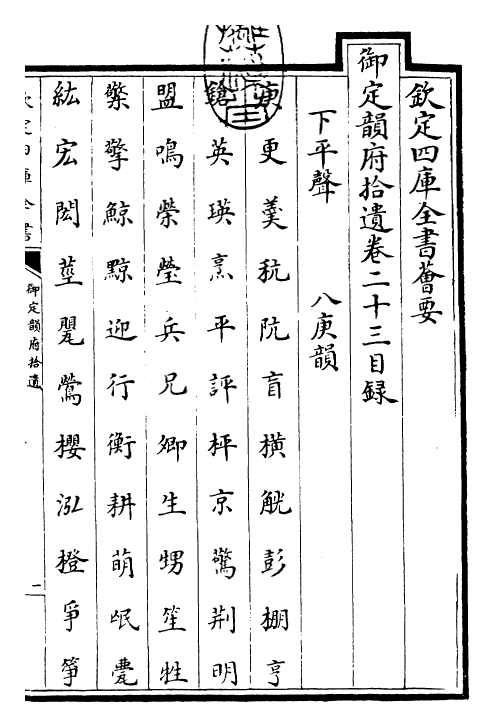 欽定四庫全書薈要
御定韻府拾遺卷二十三目録
下平聲 八庚韻
庚更羮秔阬盲橫觥彭棚亨
鎗英瑛烹平評枰京驚荆明
盟鳴榮瑩兵兄卿生甥笙牲
檠擎鯨黥迎行衡耕萌氓甍
紘宏閎莖罌鶯櫻泓橙爭箏
欽定四庫全書
御定韻府拾遺
一